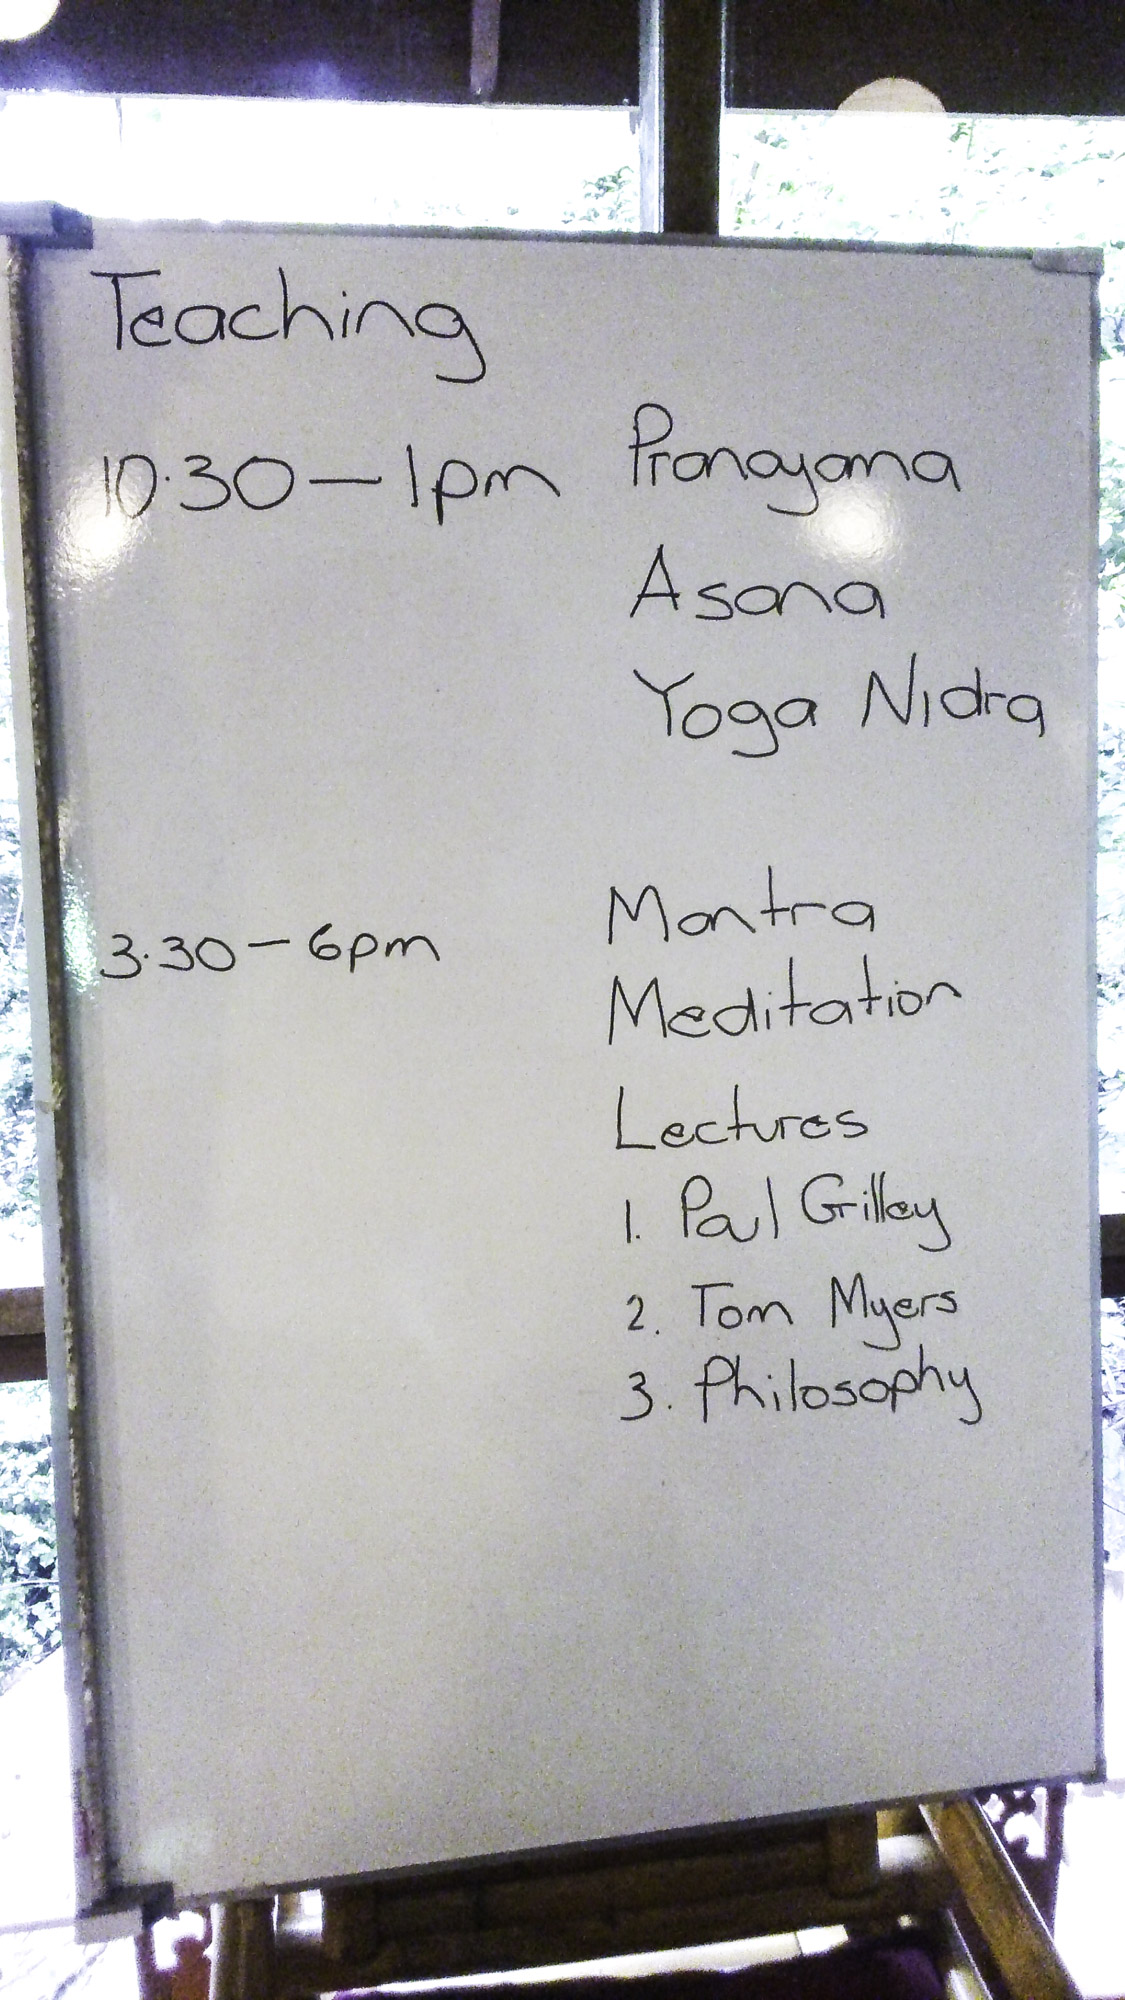 Teaching
10.30 — 1pm Pranayama
Asana
Yoga Nidra
3.30 — 6pm Mantra
Meditation
Lectures
1. Paul Grilley
2. Tom Myers
3. Philosophy